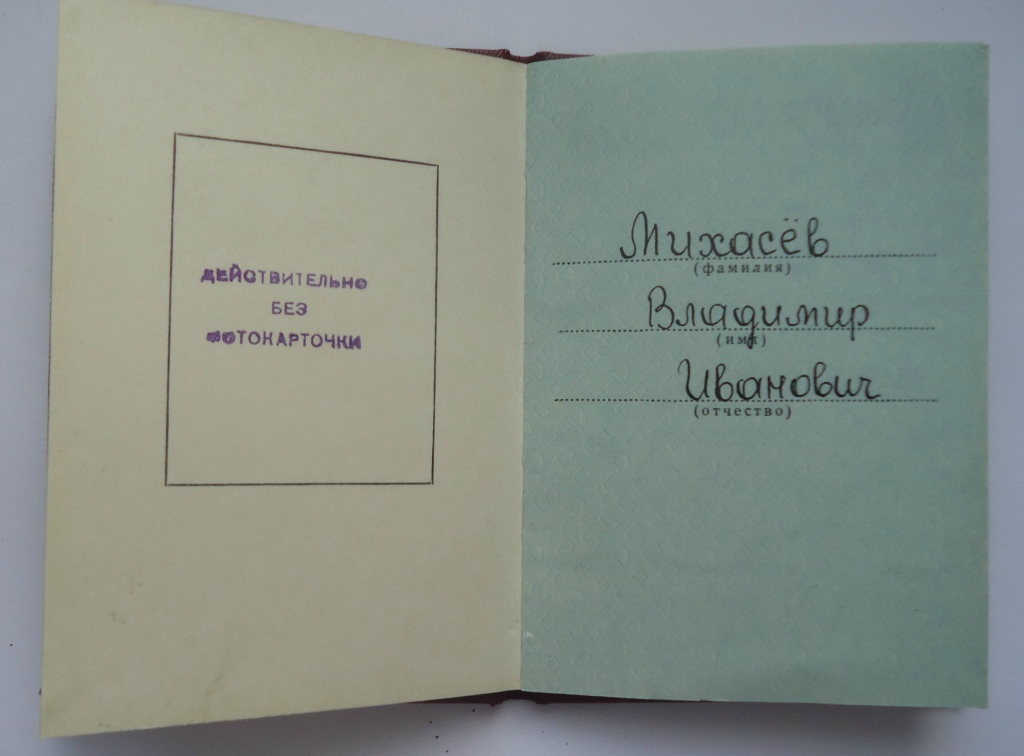 ДЕЙСТВИТЕЛЬНО
БЕЗ
ФОТОКАРТОЧКИ
Михасёв
(фамилия)
Владимир
(имя)
Иванович
(отчество)